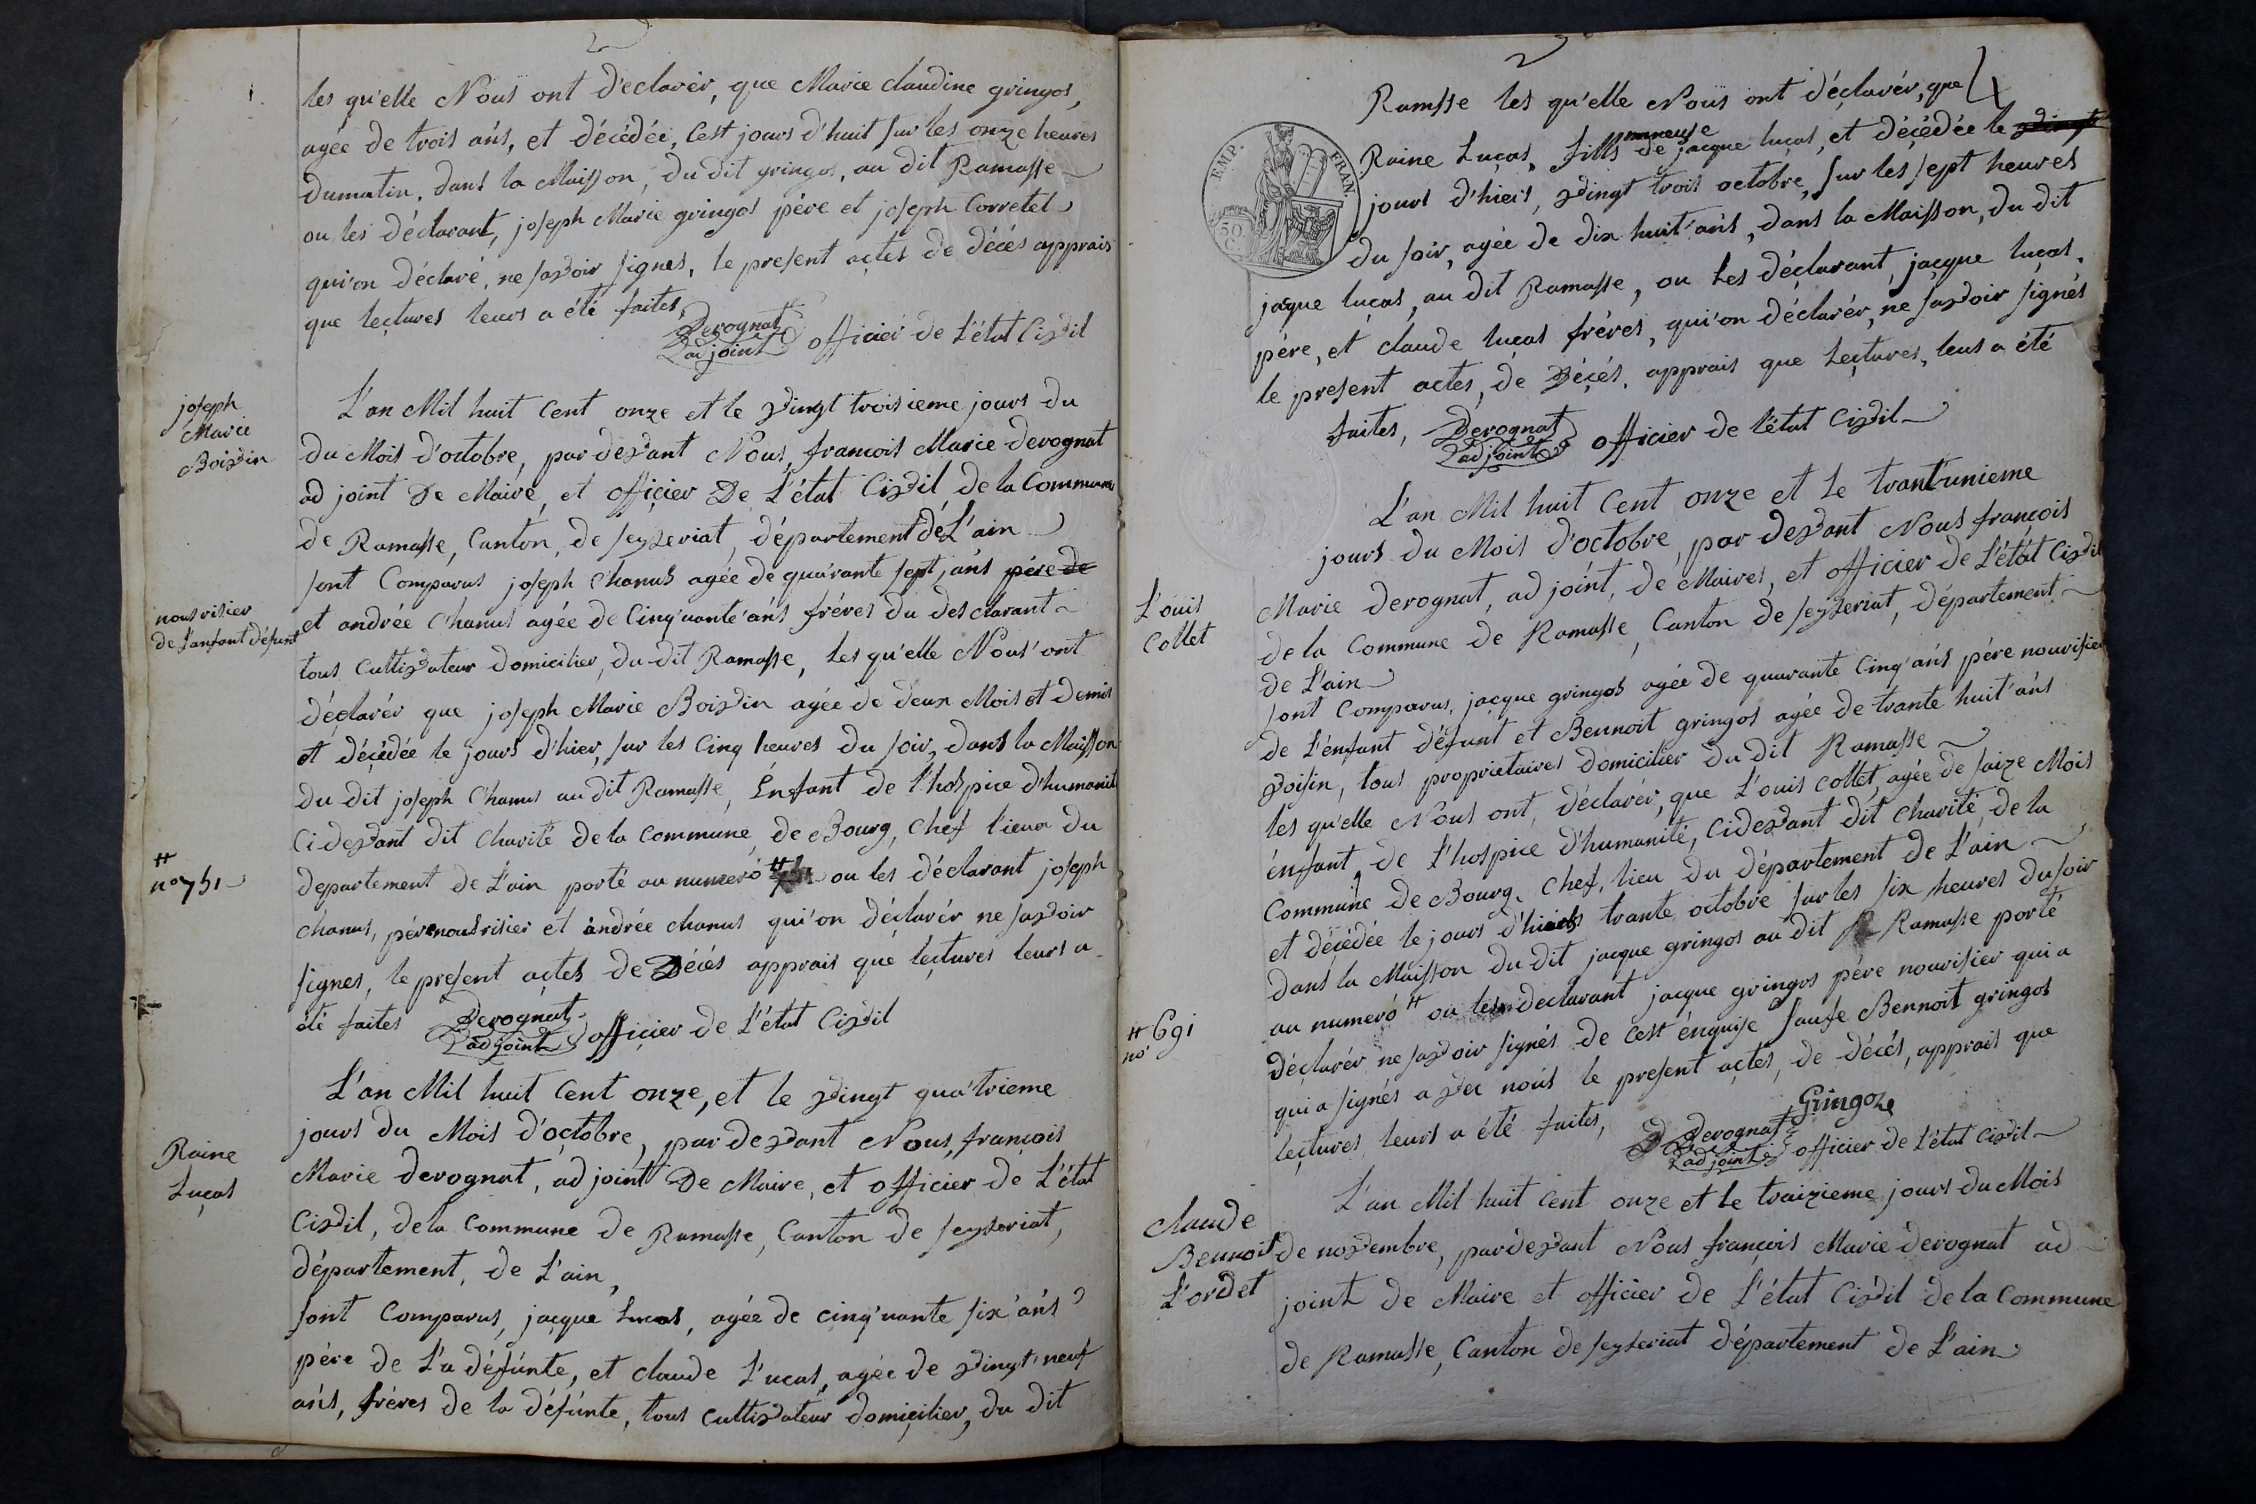 les qu'elle Nous ont d'eclarér, que Marie claudine gringos,
agée de trois áns, et décédée, Cest jours d'huit sur les onze heures
dumatin, dans la Maisson, du dit gringos, au dit Ramasse
ou les déclarant, joseph Marie gringos pére et joseph Corretet
qui'on déclaré, ne savoir signes, le present actes de décés apprais
que lectures leurs a été faites,
Derognat
adjoint officier de L'état Civil
joseph
Marie
Boivin
L'an Mil huit Cent onze et le vingt troisieme jours du
du Mois d'octobre, par devant Nous francois Marie derognat
ad joint De Maire, et officier De L'état Civil de la Commune
de Ramasse, Canton, de seyzeriat, département dé L'ain
sont Comparus joseph Chanus agée de quárante sept áns pére de
nourisier
de l'anfant défunt
et andrée Chanus agée de Cinq'uante áns fréres du desclarant
tous Cultivateur domicilier, du dit Ramasse, les qu'elle Nous'ont
déclarér que joseph Marie Boivin agée de deux Mois et demis
et décédée le jours d'hier, sur les Cinq heures du soir, dans la Maisson
du dit joseph Chanus au dit Ramasse, Enfant de l'hospice d'humanité
Cidevant dit Charité de la Commune, de Bourg, chef lieux du
# no 751
departement de L'ain porté au numeró # ou les déclarant joseph
chanus, pére nourisier et andrée chanus qui'on déclarér ne savoir
signes, le present actes de Décés apprais que lectures leurs a
été faites Derognat
adjoint officier de L'état Civil
Raine
Lucas
L'an Mil huit Cent onze, et le vingt quá'trieme
jours du Mois d'octobre, par devant Nous, francois
Marie derognat, ad joint De Maire, et officier de L'état
Civil, dela Commune de Ramasse, Canton de seyzeriat,
département, de L'ain,
sont Comparus, jacque Lucas, agée de cinq'uante six'áns
pére de L'a défúnte, et claude L'ucas, agée de vingt'neuf
áns, fréres de la défúnte, tous Cultivateur domicilier, du dit
2
Ramsse les qu'elle Nous ont déclarér, que
4
EMP. FRAN.
50 C.
Raine Lucas, fills mineuse de jacque lucas, et décédée le vingt
jours d'hiers, vingt trois octobre, sur les sept heures
du soir, agée de dix huit'áns, dans la Maisson, du dit
jacque lucas, au dit Ramasse, ou Les déclarant, jacque lucas,
pére, et claude lucas fréres, qui'on déclarér, ne savoir signés
le present actes, de Décés, apprais que Lectures, leus a été
faites, Derognat
adjoint officier de l'état Civil
L'ouis
Collet
L'an Mil huit Cent onze et le trant'unieme
jours du Mois d'octobre, par devant Nous francois
Marie derognat, ad joint, de Maires, et officier de L'état Civil
de la Commune de Ramasse, Canton de seyzeriat, département
de L'ain
sont Comparus, jacque gringos agée de quarante Cinq'áns pére nourisier
de L'énfant défunt et Bennoit gringos agée de trante huit'áns
voisin, tous proprietaires domicilier du dit Ramasse
les qu'elle Nous ont, déclarér, que L'ouis Collet, agée de saize Mois
énfant de l'hospice d'humanité, Cidevant dit Charité, de la
Commune de Bourg, Chef, lieu du département de L'ain
et décédée le jours d'hiers trante octobre sur les six heures du soir
dans la Maisson du dit jacque gringos au dit Ramasse porté
# no 691
au numeró # ou les declarant jacque gringos pére nourisier qui a
déclarér ne savoir signés de Cest énquise saufe Bennoit gringos
qui a signés a vec nous le present actes, de décés, apprais que
lectures, leurs a été faites, Gringoz
Derognat
adjoint officier de L'état Civil
claude
Bennoit
L'ordet
L'an Mil huit Cent onze et le traizieme jours du Mois
de novembre, pardevant Nous françois Marie derognat ad
joint de Maire et officier de L'état Civil de la Commune
de Ramasse, Canton de seyzeriat département de L'ain